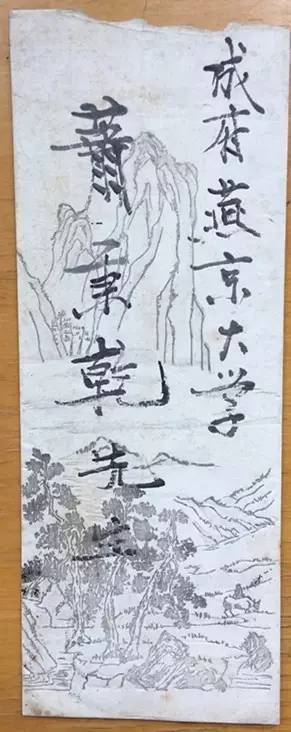 成府燕京大学
蕭秉乾先生